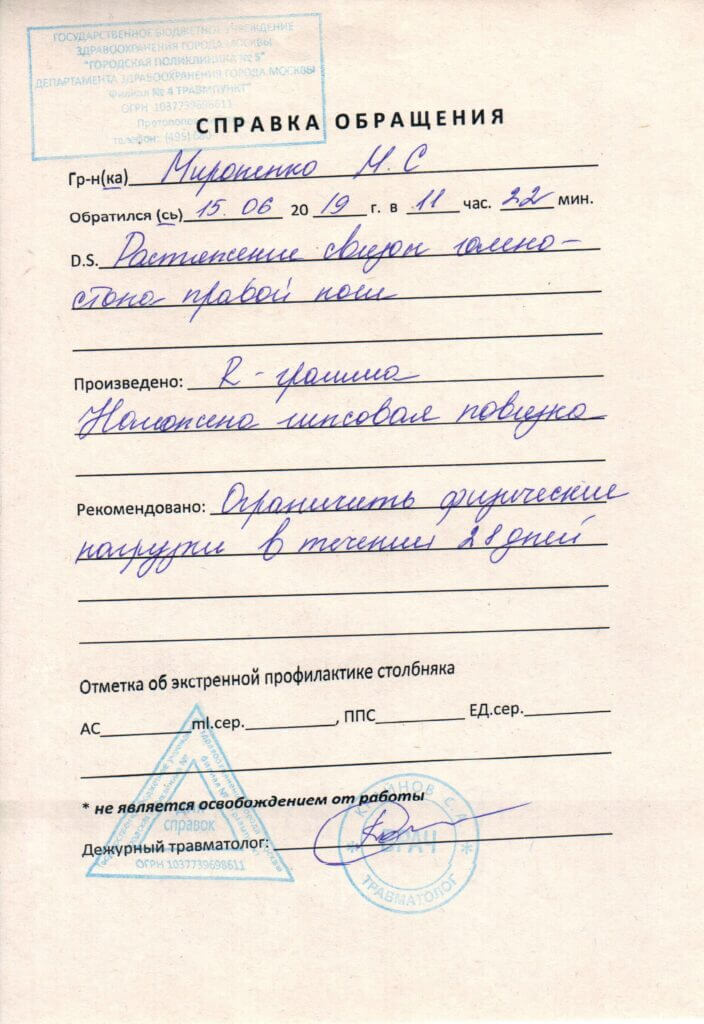 ГОСУДАРСТВЕННОЕ БЮДЖЕТНОЕ УЧРЕЖДЕНИЕ
ЗДРАВООХРАНЕНИЯ ГОРОДА МОСКВЫ
"ГОРОДСКАЯ ПОЛИКЛИНИКА № 5"
ДЕПАРТАМЕНТА ЗДРАВООХРАНЕНИЯ ГОРОДА МОСКВЫ
Филиал № 4 ТРАВМПУНКТ"
ОГРН 1037739698611
телефон: (495)
СПРАВКА ОБРАЩЕНИЯ
Гр-н(ка) Мироненко М. С
Обратился (сь) 15. 06 20 19 г. в 11 час. 22 мин.
D.S. Растяжение связок голено-
стопа правой ноги
Произведено: R - грамма
Наложена гипсовая повязка
Рекомендовано: Ограничить физические
нагрузки в течении 28 дней
Отметка об экстренной профилактике столбняка
АС ml.сер. , ППС ЕД.сер.
* не является освобождением от работы
Дежурный травматолог:
справок
ОГРН 1037739698611
ВРАЧ
ТРАВМАТОЛОГ